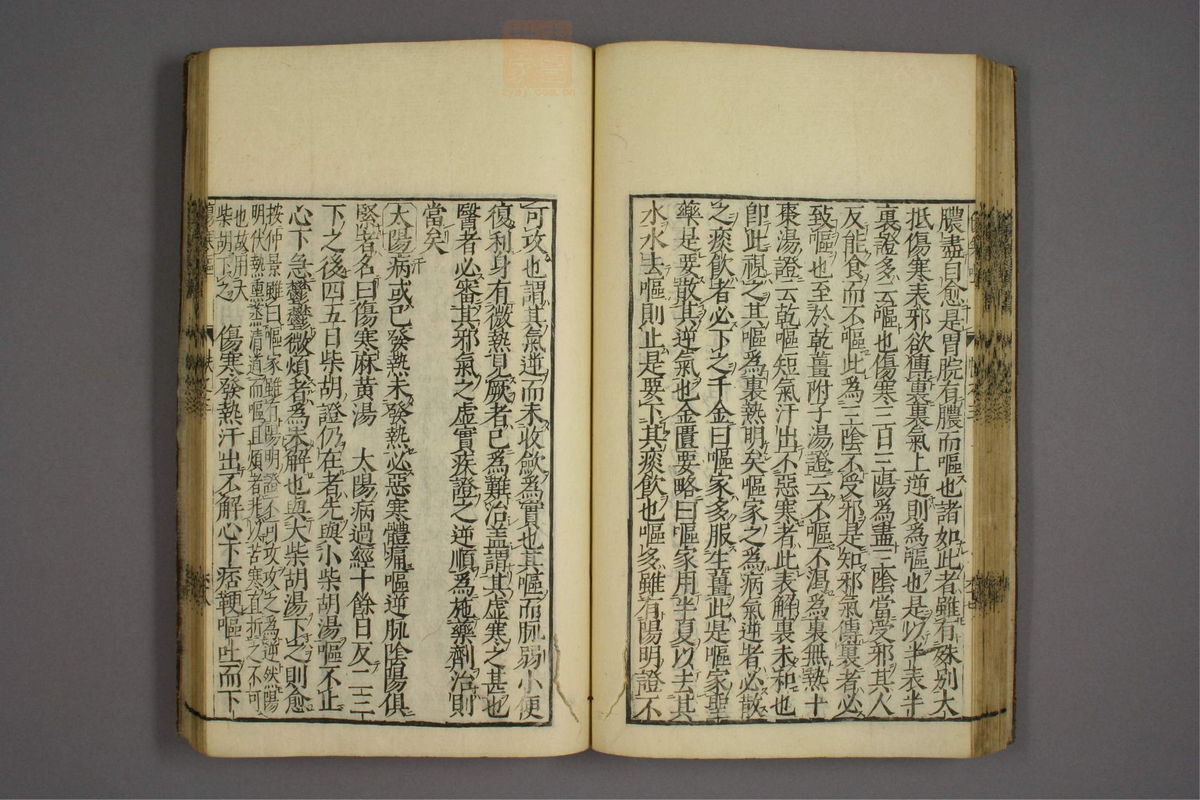 膿盡自愈是胃脘有膿而嘔也諸如此者雖有殊別大
抵傷寒表邪欲傳裏裏氣上逆則爲嘔也是以半表半
裏證多云嘔也傷寒三日三陽爲盡三陰當受邪其人
反能食而不嘔此爲三陰不受邪是知邪氣傳裏者必
致嘔也至於乾薑附子湯證云不嘔不渴爲裏無熱十
棗湯證云乾嘔短氣汗出不惡寒者此表解裏未和也
卽此視之其嘔爲裏熱明矣嘔家之爲病氣逆者必散
之痰飲者必下之千金曰嘔家多服生薑此是嘔家聖
藥是要散其逆氣也金匱要略曰嘔家用半夏以去其
水水去嘔則止是要下其痰飲也嘔多雖有陽明證不
可攻也謂其氣逆而未收斂爲實也其嘔而脈弱小便
復利身有微熱見厥者已爲難治蓋謂其虛寒之甚也
醫者必審其邪氣之虛實疾證之逆順爲施藥劑治則
當矣
太陽病或已發熱未發熱必惡寒體痛嘔逆脈陰陽俱
緊者名曰傷寒麻黃湯 太陽病過經十餘日反二三
下之後四五日柴胡證仍在者先與小柴胡湯嘔不止
心下急鬱鬱微煩者爲未解也與大柴胡湯下之則愈
按仲景雖曰嘔家雖有陽明證不可攻攻之爲逆然陽
明伏熱熏蒸清道而嘔且煩者非以苦寒直折之不可
也故用大
柴胡下之
傷寒發熱汗出不解心下痞鞕嘔吐而下